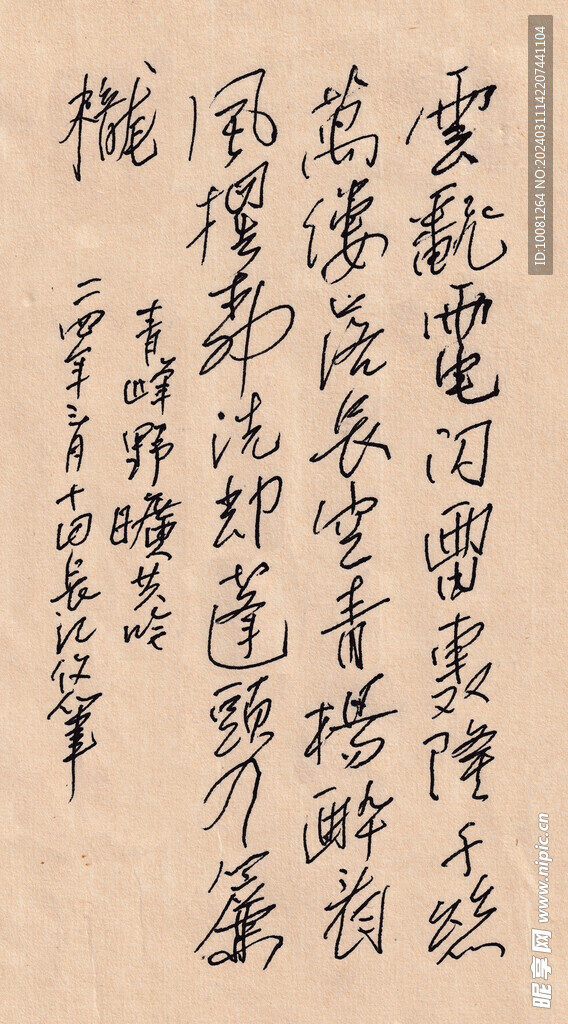 雲翻電閃雷轰隆千
萬縷落長空青楊醉
風洗却蓬頭入簾
櫳
青峰野曠共吟
二四年三月十四長江筆
ID:10081264 NO:20240311142207441104
昵享网 www.nipic.cn